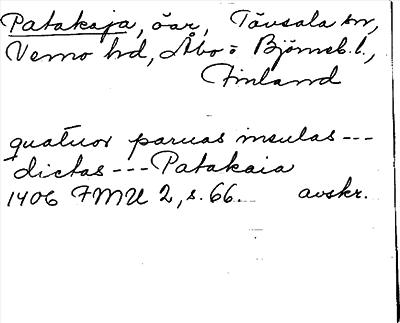 Patakaja, öar, Tövsala sn,
Vemo hd, Åbo = Björneb. l.,
Finland
quatuor paruas insulas ---
dictas --- Patakaia
1406 FMU 2, s. 66. avskr.